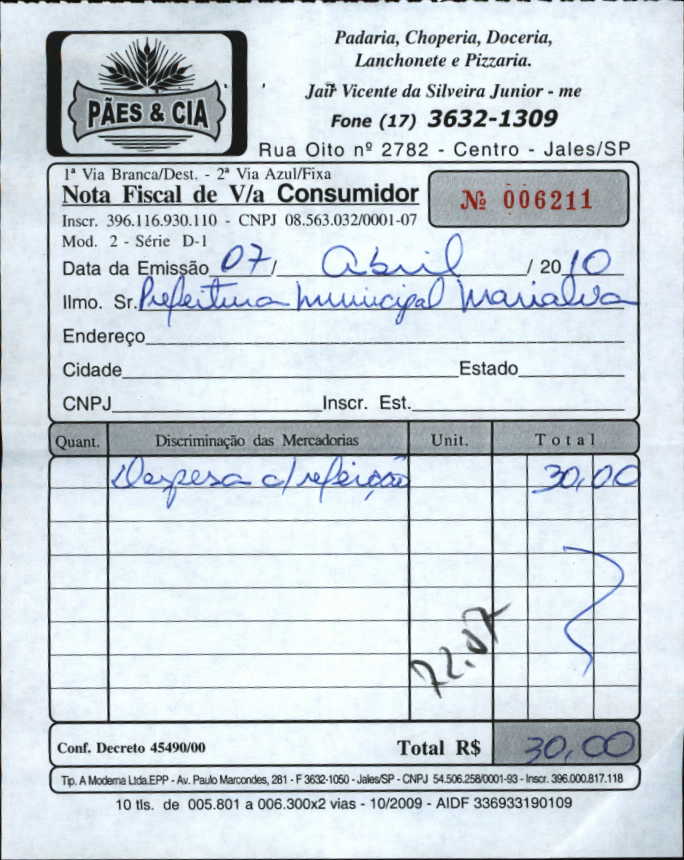 PÃES & CIA
Padaria, Choperia, Doceria,
Lanchonete e Pizzaria.
Jair Vicente da Silveira Junior - me
Fone (17) 3632-1309
Rua Oito nº 2782 - Centro - Jales/SP
1ª Via Branca/Dest. - 2ª Via Azul/Fixa
Nota Fiscal de V/a Consumidor
Nº 006211
Inscr. 396.116.930.110 - CNPJ 08.563.032/0001-07
Mod. 2 - Série D-1
Data da Emissão 07 / Abril / 2010
Ilmo. Sr. Prefeitura Municipal Marialva
Endereço
Cidade Estado
CNPJ Inscr. Est.
Quant. Discriminação das Mercadorias Unit. Total
Despesa c/ refeição 30,00
72.07
Conf. Decreto 45490/00 Total R$ 30,00
Tip. A Moderna Ltda.EPP - Av. Paulo Marcondes, 281 - F 3632-1050 - Jales/SP - CNPJ 54.506.258/0001-93 - Inscr. 396.000.817.118
10 tls. de 005.801 a 006.300x2 vias - 10/2009 - AIDF 336933190109